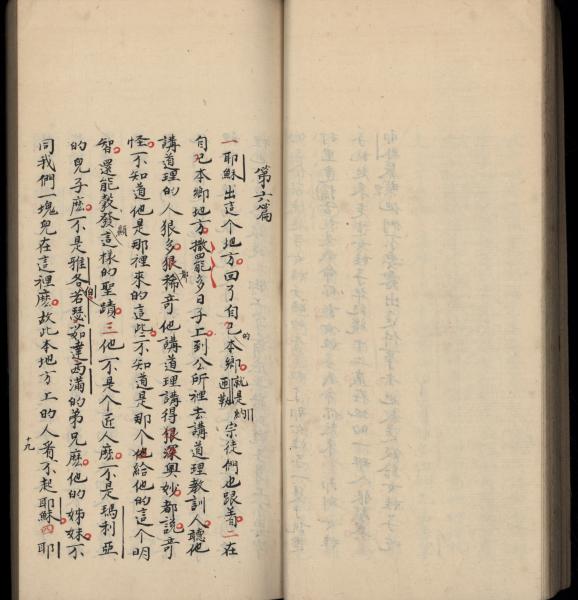 第六篇
一耶穌出這个地方。回了自己的本鄉。就是 宗徒們也跟着。二在
自己本鄉地方。撒罷多日子上。到公所裡去講道理教訓人。聽他
講道理的人狠多。都狠稀奇他講道理講得狠深奧妙。都說奇
怪。不知道他是那裡來的這些。不知道是那个他給他的這个明
智。還能彀發顯這樣的聖蹟。三他不是个匠人麽。不是瑪利亞
的兒子麽。不是雅各伯若瑟茹達西滿的弟兄麽。他的姊妹不
同我們一塊兒在這裡麽。故此本地方上的人看不起耶穌。四耶
十九